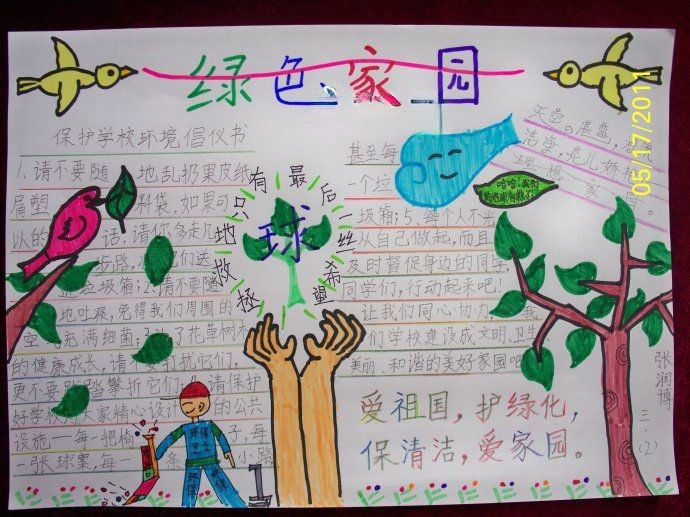 绿色家园
保护学校环境倡仪书
1、请不要随 地乱扔果皮纸
屑塑 料袋,如果可
以的 话,请你多走几
步路, 们送
垃圾箱;2、请不要随
地吐痰,免得我们周围的
空 充满细菌;3、为了花草树木
的健康成长,请不要打扰它们,
更不要 踏攀折它们; 请保护
好学校 大家精心设计 的公共
设施——每一把椅 子,每
一张球 ,每一 条 小路
有最后一丝希望
只
地球
拯救
甚至每
一个垃
圾箱;5、每个人不光
从自己做起,而且
及时督促身边的同学,
同学们,行动起来吧!
让我们同心协力 我
们学校建设成文明、卫生、
美丽、和谐的美好家园吧
天空。湛蓝,
洁净,花儿娇
理想家园。
哈哈!我们
爱祖国,护绿化,
保清洁,爱家园。
张润博
三.(2)
环保
卫士
环保
05/17/2011